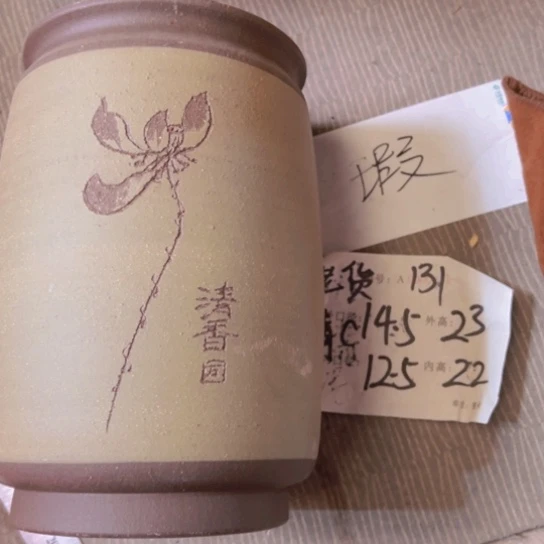 清香园
瑕
尾货 号: A 131
14.5 外高: 23
12.5 内高: 22